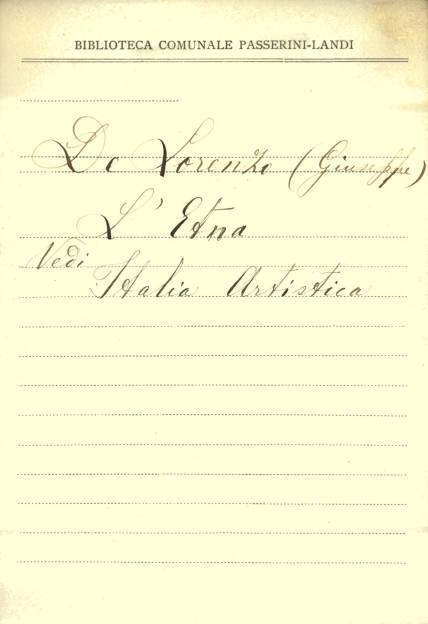 BIBLIOTECA COMUNALE PASSERINI-LANDI
De Lorenzo (Giuseppe)
L' Etna
Vedi
Italia Artistica